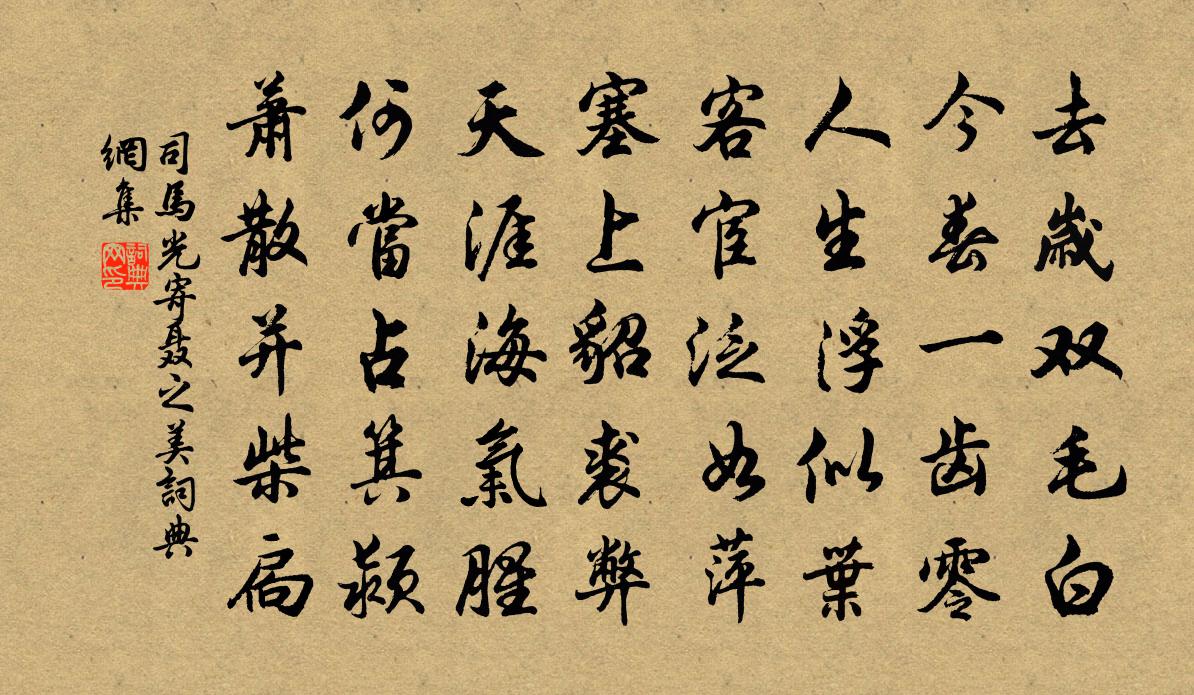 去歳双毛白
今春一齿零
人生浮似葉
客宦泛如萍
塞上貂裘弊
天涯海氣腥
何當占箕潁
蕭散并柴扃
司馬光寄聂之美詞典
網集
詞典
网印